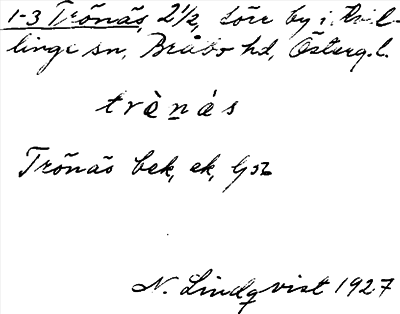 1-3 Trönäs, 2 1/2, före by i Kvil-
linge sn, Bråbo hd, Österg. l.
trö̀nä́s
Trönäs bek, ek,
N. Lindqvist 1927